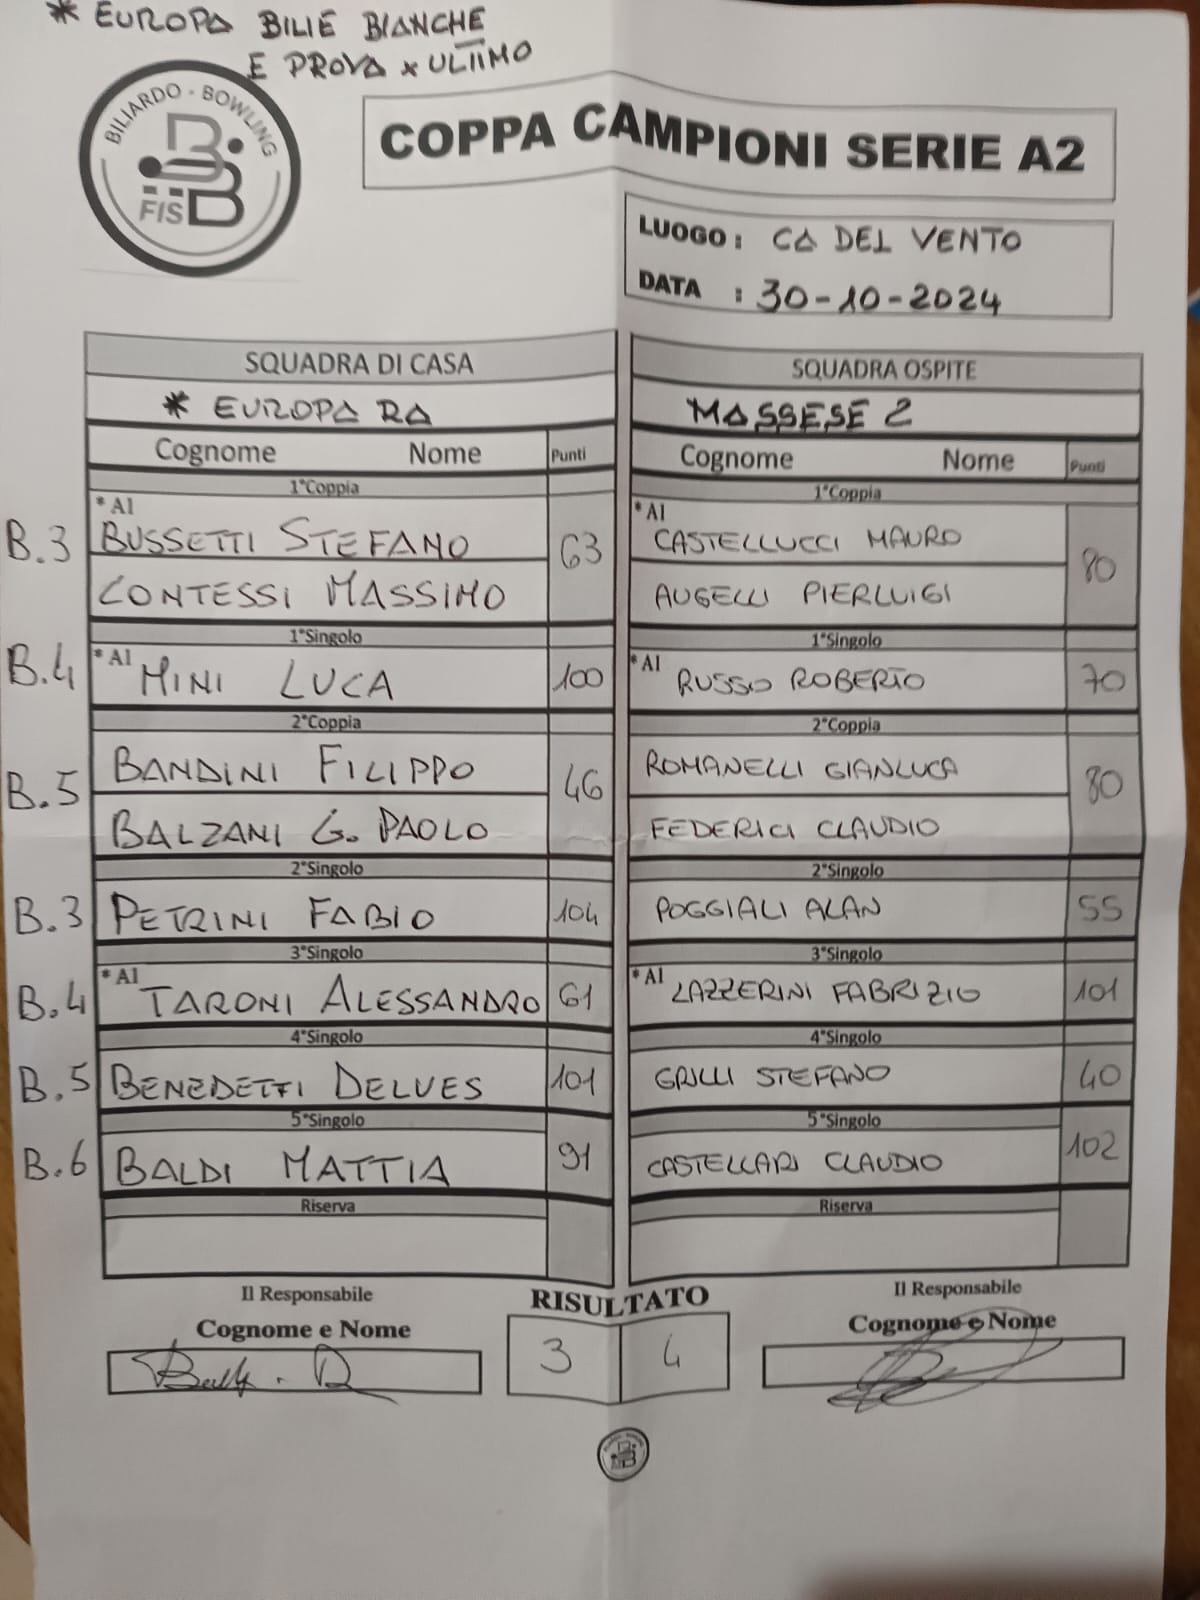 * EUROPA BILIE BIANCHE
E PROVA x ULTIMO
BILIARDO - BOWLING
FISBB
COPPA CAMPIONI SERIE A2
LUOGO : CA DEL VENTO
DATA : 30-10-2024
SQUADRA DI CASA
* EUROPA RA
Cognome Nome Punti
1°Coppia
B.3 *A1 BUSSETTI STEFANO 63
CONTESSI MASSIMO
1°Singolo
B.4 *A1 MINI LUCA 100
2°Coppia
B.5 BANDINI FILIPPO 46
BALZANI G. PAOLO
2°Singolo
B.3 PETRINI FABIO 104
3°Singolo
B.4 *A1 TARONI ALESSANDRO 61
4°Singolo
B.5 BENEDETTI DELVES 101
5°Singolo
B.6 BALDI MATTIA 91
Riserva
SQUADRA OSPITE
MASSESE 2
Cognome Nome Punti
1°Coppia
*A1 CASTELLUCCI MAURO 80
AUGELLI PIERLUIGI
1°Singolo
*A1 RUSSO ROBERTO 70
2°Coppia
ROMANELLI GIANLUCA 80
FEDERICI CLAUDIO
2°Singolo
POGGIALI ALAN 55
3°Singolo
*A1 LAZZERINI FABRIZIO 101
4°Singolo
GRILLI STEFANO 40
5°Singolo
CASTELLARI CLAUDIO 102
Riserva
Il Responsabile
Cognome e Nome
RISULTATO
3 4
Il Responsabile
Cognome e Nome